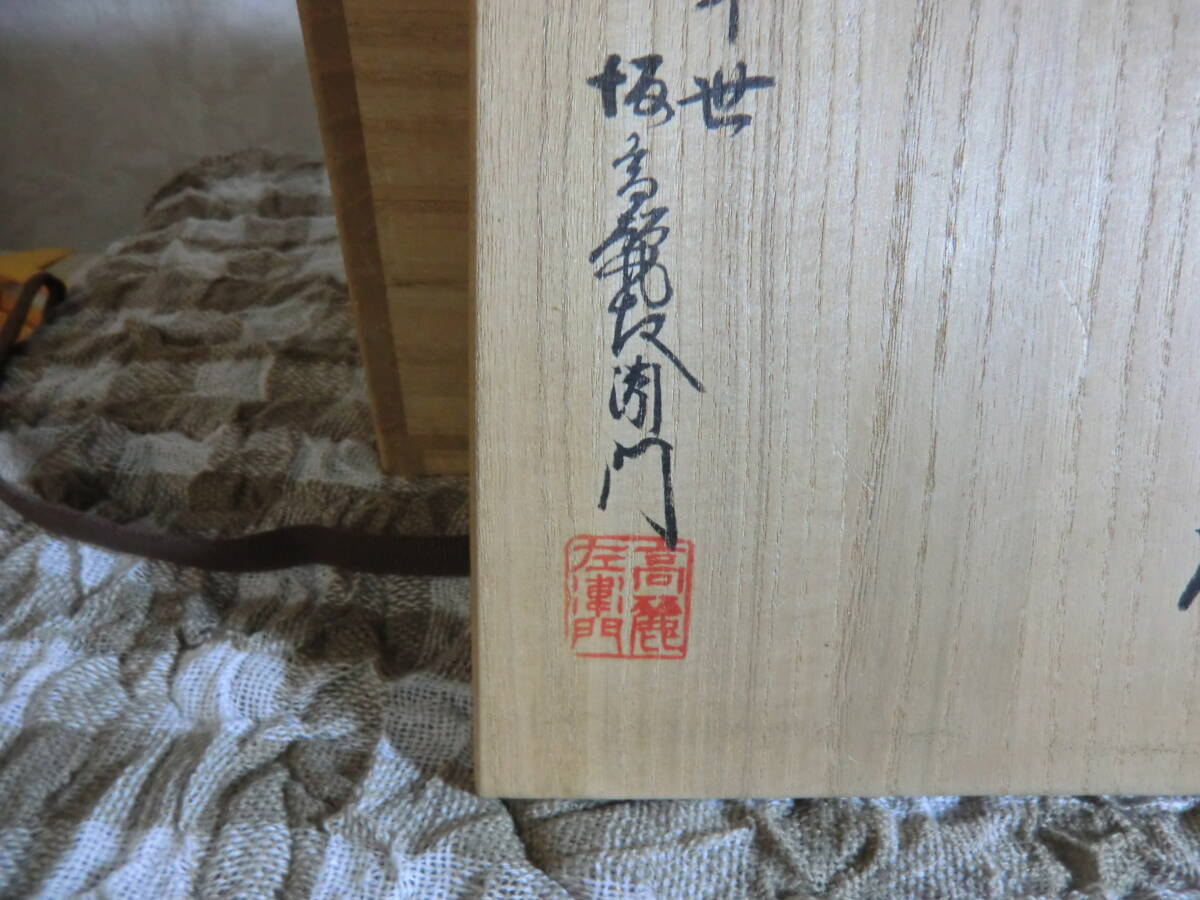 世
坂高麗左衛門
高麗
左衛門